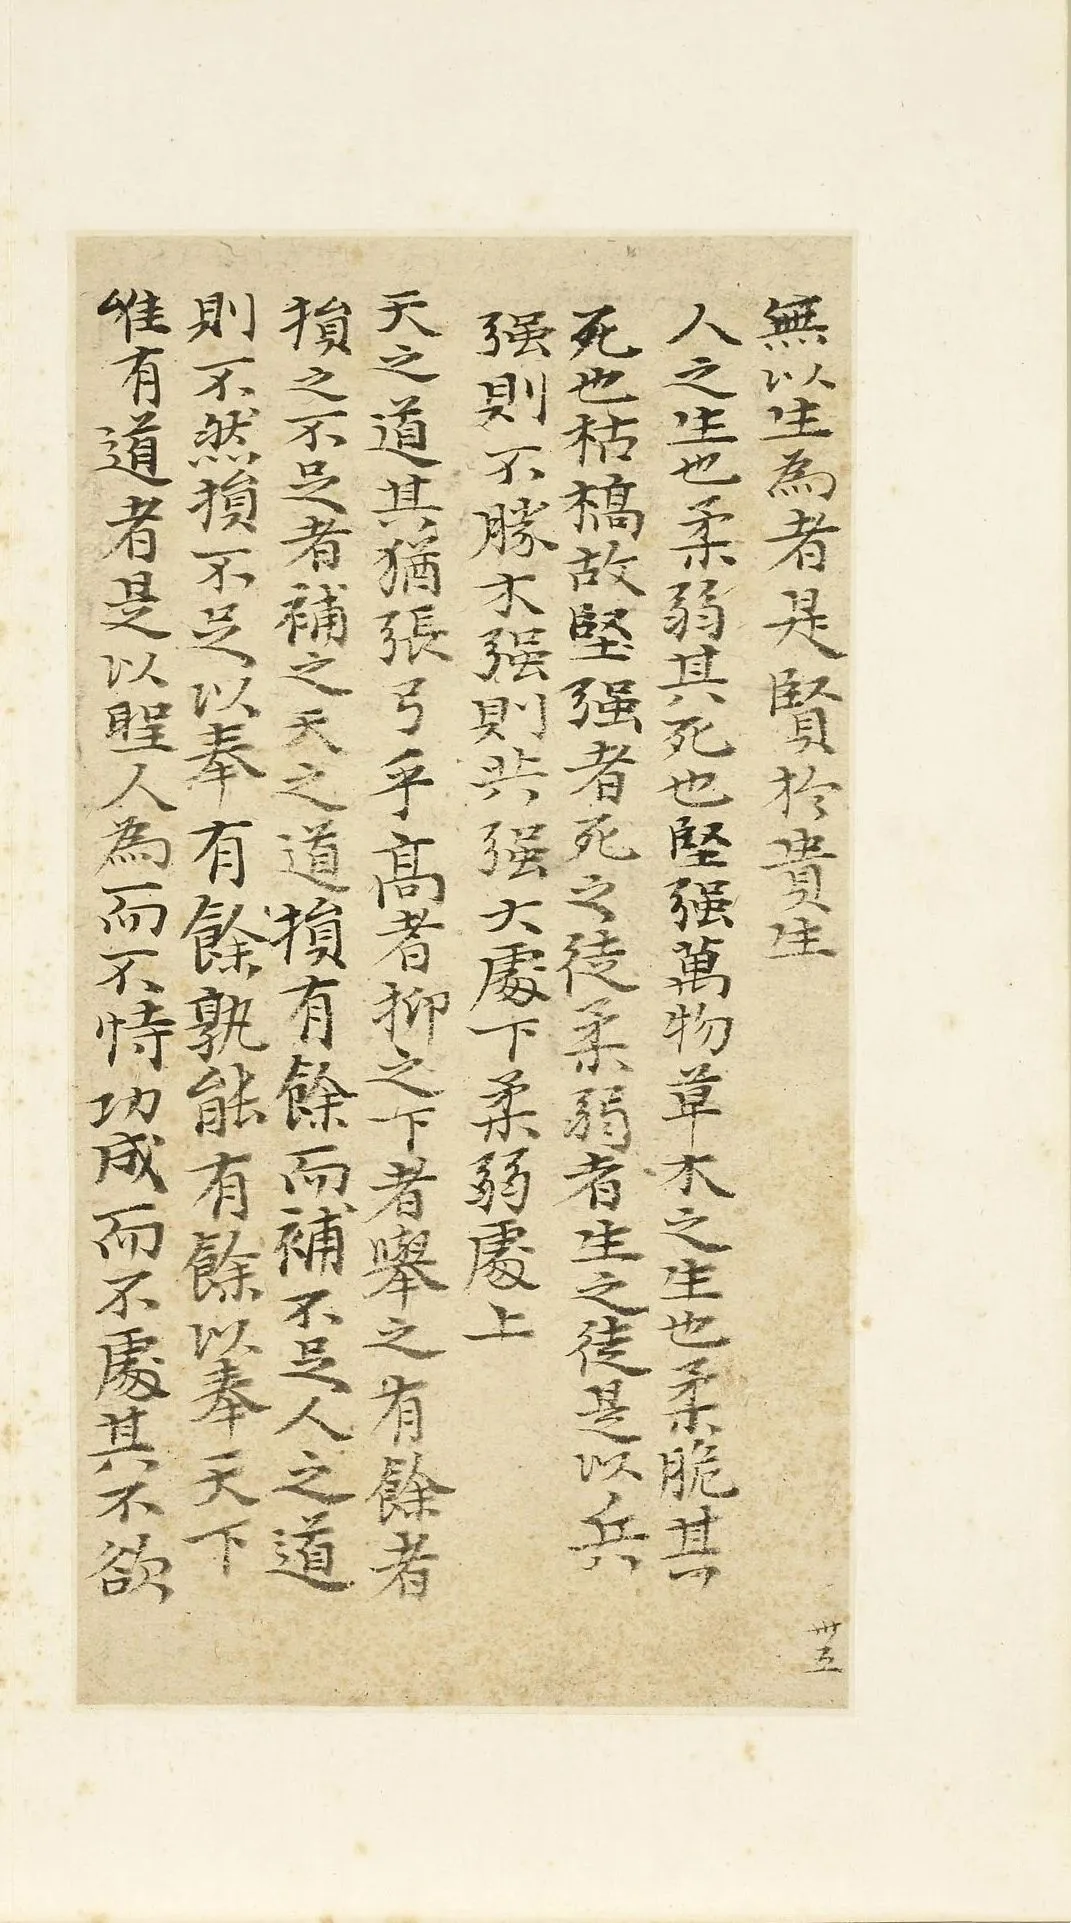 無以生為者是賢於貴生
人之生也柔弱其死也堅强萬物草木之生也柔脆其
死也枯槁故堅强者死之徒柔弱者生之徒是以兵
强則不勝木强則共强大處下柔弱處上
天之道其猶張弓乎高者抑之下者舉之有餘者
損之不足者補之天之道損有餘而補不足人之道
則不然損不足以奉有餘孰能有餘以奉天下
唯有道者是以聖人為而不恃功成而不處其不欲
卅五